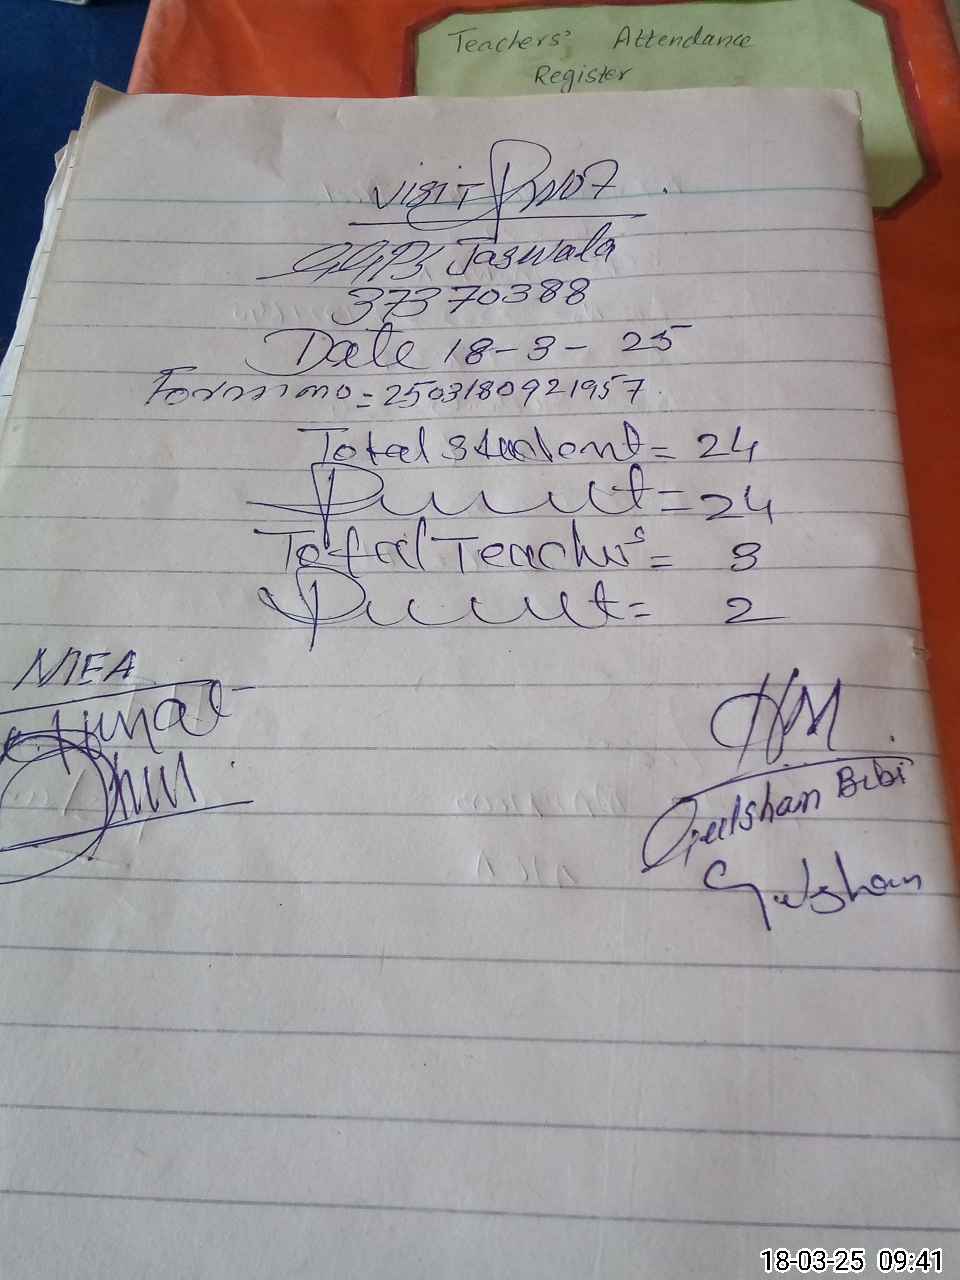 Teachers' Attendance
Register
Visit Proof
GGPS Jaswala
37370388
Date 18-3-25
Form no = 2503180921957
Total student = 24
Present = 24
Total Teachers = 3
Present = 2
MEA
HM
Gulshan Bibi
Gulshan
18-03-25 09:41